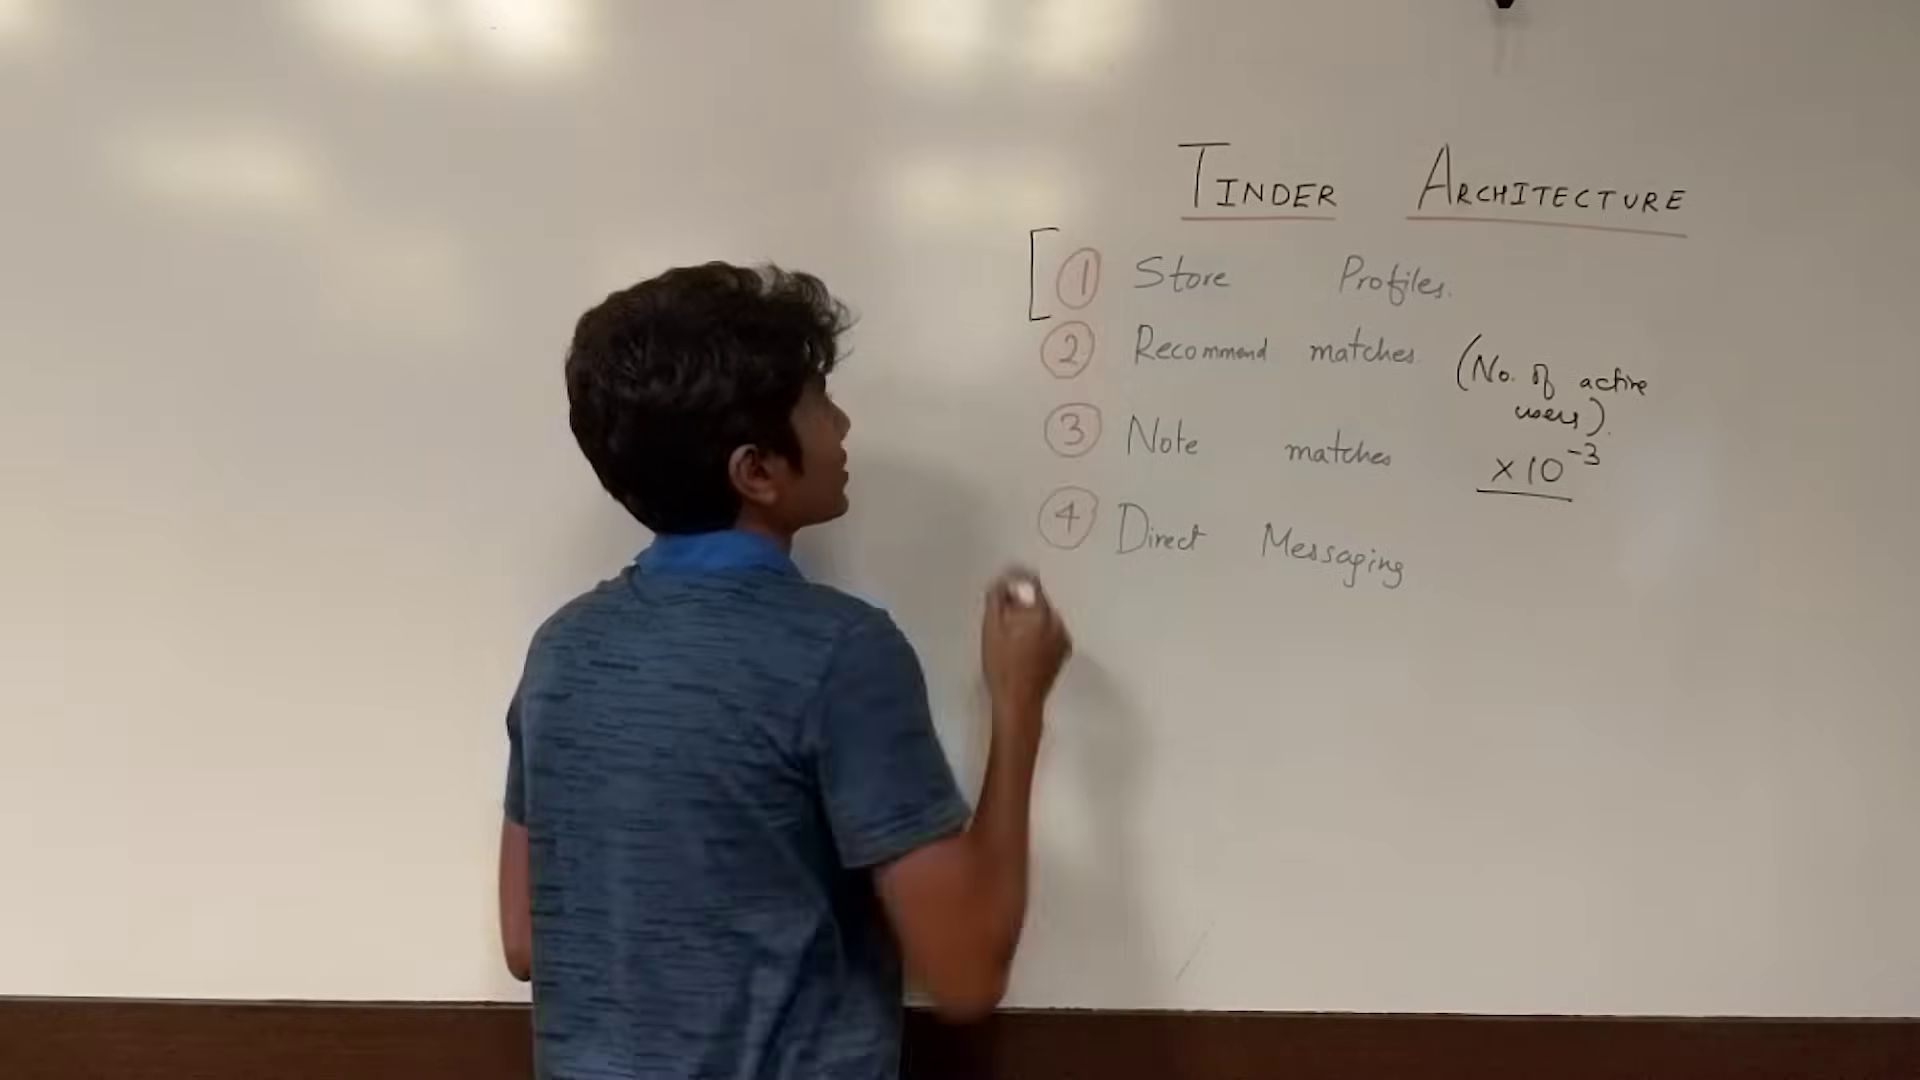 TINDER ARCHITECTURE
① Store Profiles.
② Recommend matches (No. of active
users).
③ Note matches ×10⁻³
④ Direct Messaging